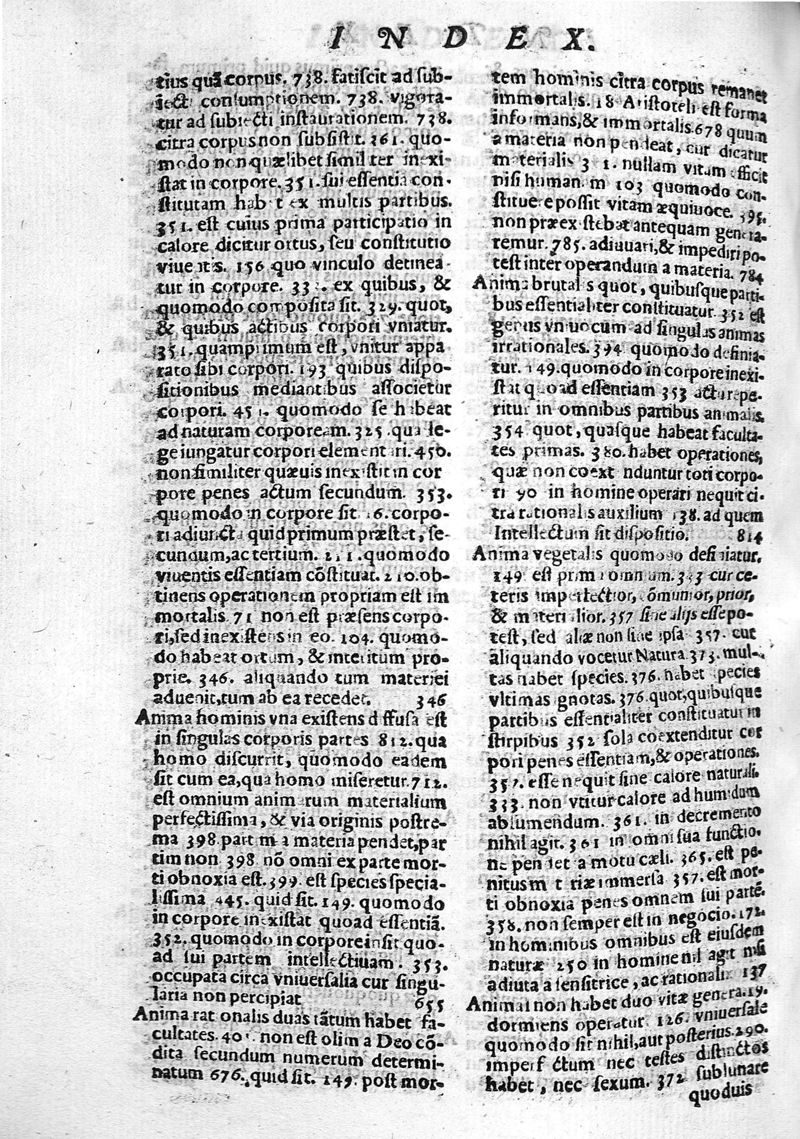 INDEX.
tius quã corpus. 738. fatiscit ad sub-
iecti consumptionem. 738. vigora-
tur ad subiecti instaurationem. 738.
citra corpus non subsistit. 361. quo-
modo non quælibet simil ter inexi-
stat in corpore. 351. sui essentia con-
stitutam hab t ex multis partibus.
351. est cuius prima participatio in
calore dicitur ortus, seu constitutio
viue tis. 156 quo vinculo detinea-
tur in corpore. 33 . ex quibus, &
quomodo composita sit. 329. quot,
& quibus actibus corpori vniatur.
351. quamprimum est, vnitur appa
rato sibi corpori. 193 quibus dispo-
sitionibus mediantibus associetur
corpori. 451. quomodo se habeat
ad naturam corpoream. 325. qua le-
ge iungatur corpori element ri. 450.
non similiter quæuis inexistit in cor
pore penes actum secundum. 353.
quomodo in corpore sit 16. corpo-
ri adiuncta quid primum præstet, se-
cundum, ac tertium. 211. quomodo
viuentis essentiam cõstituat. 210. ob-
tinens operationem propriam est im
mortalis. 71 non est præsens corpo-
ri, sed inexistens in eo. 104. quomo-
do habeat ortum, & interitum pro-
prie. 346. aliquando tum materiei
aduenit, tum ab ea recedet. 346
Anima hominis vna existens d ffusa est
in singulas corporis partes 812. qua
homo discurrit, quomodo eadem
sit cum ea, qua homo miseretur. 712.
est omnium animarum materialium
perfectissima, & via originis postre-
ma 398. partim a materia pendet, par
tim non 398. nõ omni ex parte mor-
ti obnoxia est. 399. est species specia-
lissima 445. quid sit. 149. quomodo
in corpore inexistat quoad essentiã.
352. quomodo in corpore insit quo-
ad sui partem intellectiuam. 353.
occupata circa vniuersalia cur singu-
laria non percipiat 655
Anima rat onalis duas tãtum habet fa-
cultates. 40 . non est olim a Deo cõ-
dita secundum numerum determi-
natum 676. quid sit. 149. post mor-
tem hominis citra corpus remanet
immortalis. 18 Aristoteli est forma
informans, & immortalis. 678 quum
a materia non pendeat, cur dicatur
materialis 3 1. nullam vitam efficit
nisi human m 103 quomodo con-
stituere possit vitam æquiuoce. 395.
non præex stebat antequam genera-
remur. 785. adiuuari, & impediri po-
test inter operandum a materia. 784
Anima brutal s quot, quibusque parti-
bus essentialiter constituatur. 352 est
genus vniuocum ad singulas animas
irrationales. 394 quomodo definia-
tur. 149. quomodo in corpore inexi-
stat quoad essentiam 353 actu repe-
ritur in omnibus partibus animalis.
354 quot, quasque habeat faculta-
tes primas. 380. habet operationes,
quæ non coext nduntur toti corpo-
ri 90 in homine operari nequit ci-
tra rationalis auxilium 138. ad quem
Intellectum sit dispositio. 814
Anima vegetalis quomodo definiatur.
149 est prim omnium. 343 cur ce-
teris imperfectior, cõmunior, prior,
& materialior. 357 sine alijs esse po-
test, sed aliæ non sine ipsa 357. cur
aliquando vocetur Natura. 373. mul-
tas habet species. 376. habet species
vltimas gnotas. 376. quot, quibusque
partibus essentialiter constituatur in
stirpibus 352 sola coextenditur cor
pori penes essentiam, & operationes.
357. esse nequit sine calore naturali.
333. non vtitur calore ad humidum
absumendum. 361. in decremento
nihil agit. 361 in omni sua functio-
ne pendet a motu cæli. 365. est pe-
nitus m t riæ immersa 357. est mor-
ti obnoxia penes omnem sui partẽ.
358. non semper est in negocio. 172.
in hominibus omnibus est eiusdem
naturæ 250 in homine nil agit nisi
adiuta a sensitrice, ac rationali 137
Animal non habet duo vitæ genera. 19.
dormiens operatur. 126. vniuersale
quomodo sit nihil, aut posterius. 290.
imperf ctum nec testes distinctos
habet, nec sexum. 372 sublunare
quoduis